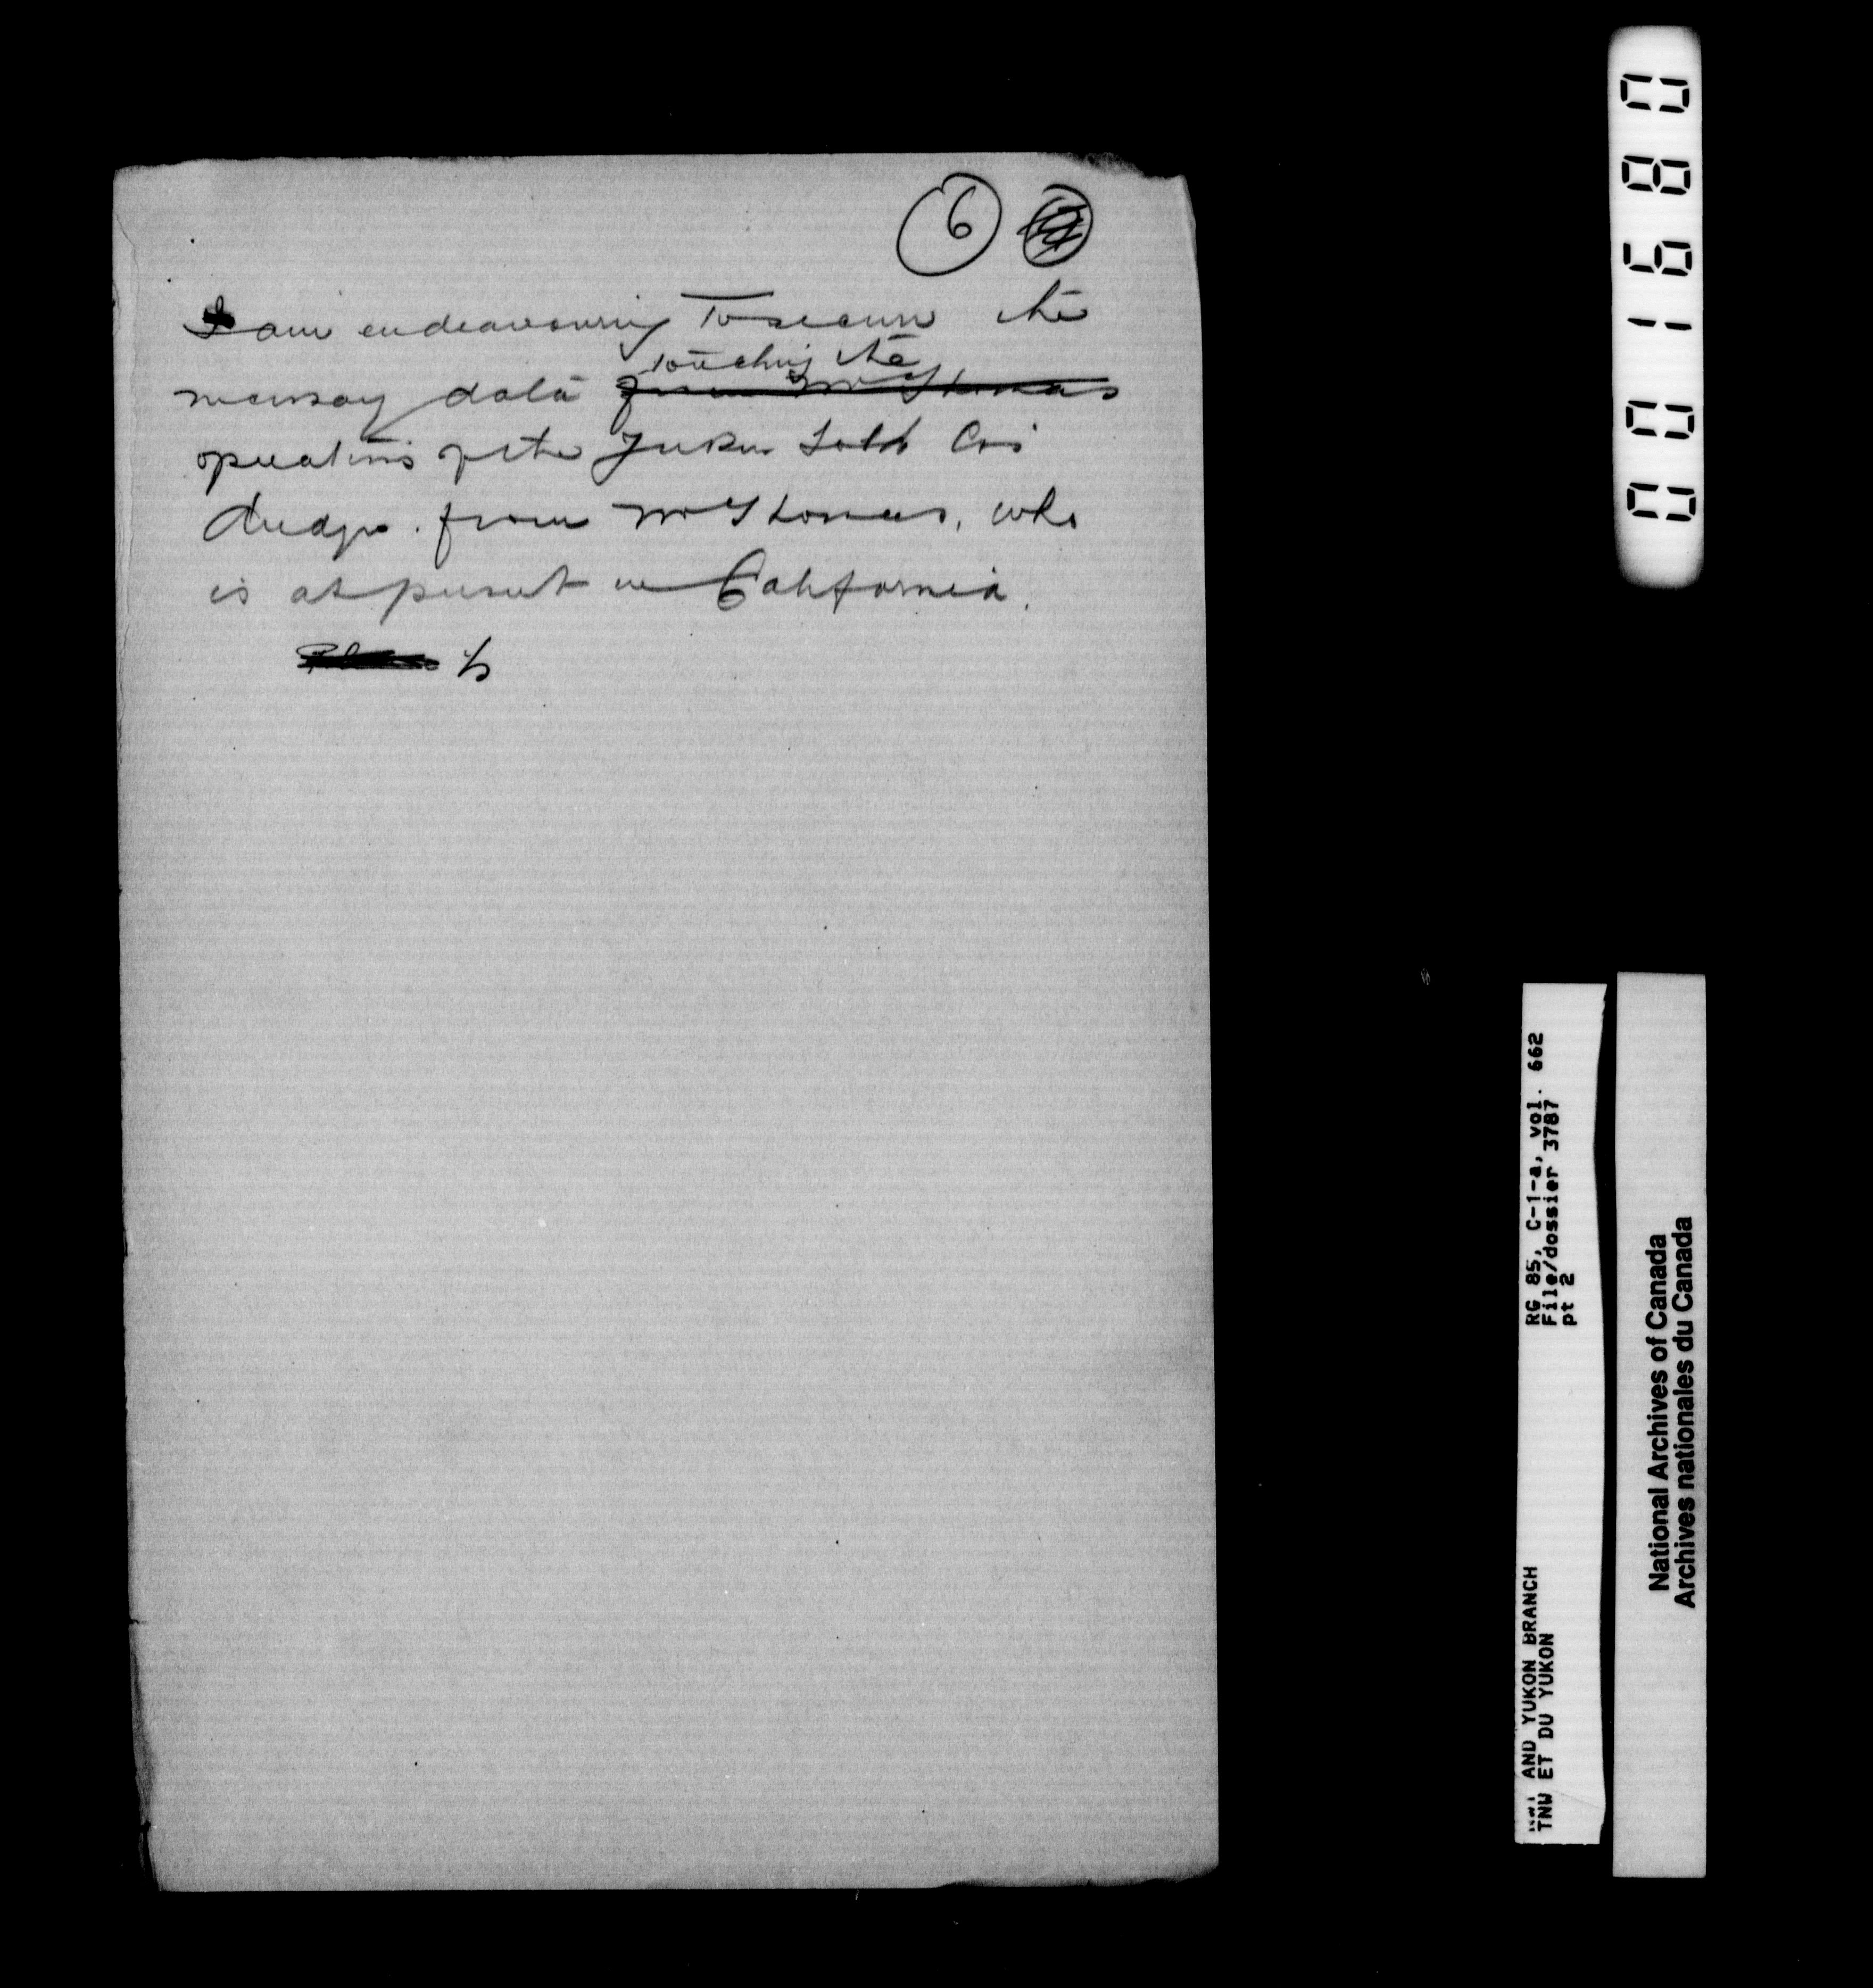 6
I am endeavouring to secure the
necessary data touching the from Mr Thomas
operations of the Yukon Gold Co's
dredges from Mr Thomas, who
is at present in California.
001680
RG 85, C-1-a, vol. 662
File/dossier 3787
pt 2
AND YUKON BRANCH
TNW ET DU YUKON
National Archives of Canada
Archives nationales du Canada